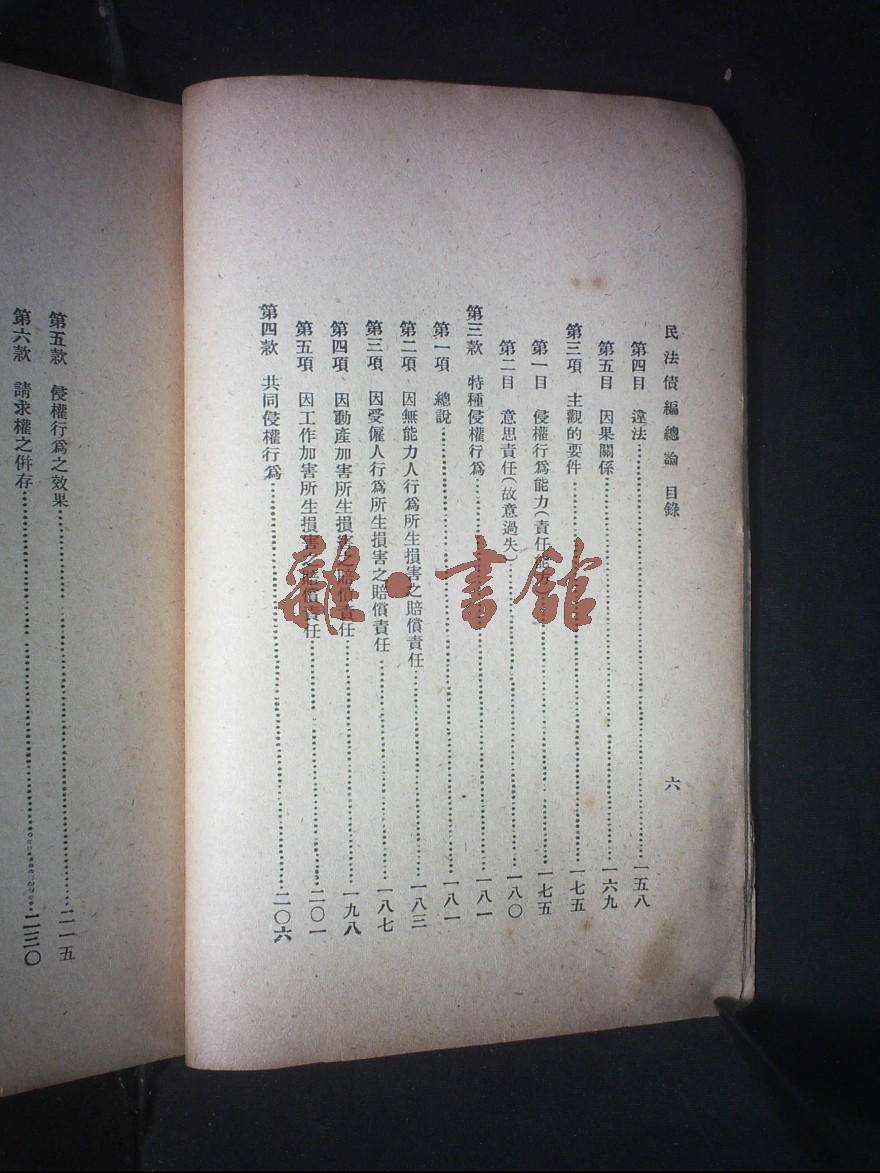 民法債編總論　目錄　六
第四目　違法……一五八
第五目　因果關係……一六九
第三項　主觀的要件……一七五
第一目　侵權行爲能力(責任能力)……一七五
第二目　意思責任(故意過失)……一八〇
第三款　特種侵權行爲……一八一
第一項　總說……一八一
第二項　因無能力人行爲所生損害之賠償責任……一八三
第三項　因受僱人行爲所生損害之賠償責任……一八七
第四項　因動產加害所生損害之賠償責任……一九八
第五項　因工作加害所生損害之賠償責任……二〇一
第四款　共同侵權行爲……二〇六
第五款　侵權行爲之效果……二一五
第六款　請求權之併存……二三〇
雜·書館